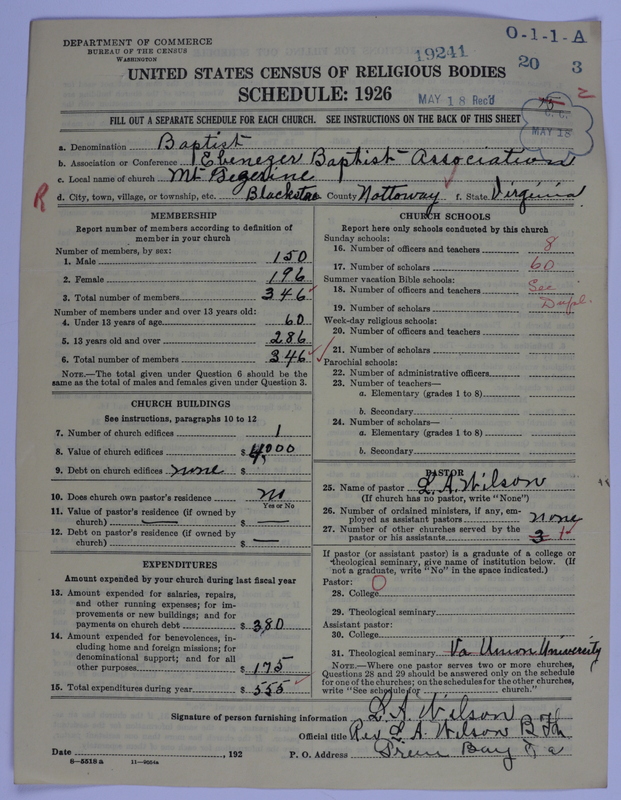 DEPARTMENT OF COMMERCE
BUREAU OF THE CENSUS
WASHINGTON
19241
O-1-1-A
20 3
UNITED STATES CENSUS OF RELIGIOUS BODIES
SCHEDULE: 1926
MAY 18 Rec'd
MAY 18
2
FILL OUT A SEPARATE SCHEDULE FOR EACH CHURCH. SEE INSTRUCTIONS ON THE BACK OF THIS SHEET
a. Denomination Baptist
b. Association or Conference Ebenezer Baptist Association
c. Local name of church Mt
R
d. City, town, village, or township, etc. Blackstone County Nottoway f. State Virginia
MEMBERSHIP
Report number of members according to definition of
member in your church
Number of members, by sex:
1. Male 150
2. Female 196
3. Total number of members 346
Number of members under and over 13 years old:
4. Under 13 years of age 60
5. 13 years old and over 286
6. Total number of members 346
NOTE.—The total given under Question 6 should be the
same as the total of males and females given under Question 3.
CHURCH BUILDINGS
See instructions, paragraphs 10 to 12
7. Number of church edifices 1
8. Value of church edifices $4000
9. Debt on church edifices none $
10. Does church own pastor's residence no
Yes or No
11. Value of pastor's residence (if owned by
church) — $ —
12. Debt on pastor's residence (if owned by
church) $ —
EXPENDITURES
Amount expended by your church during last fiscal year
13. Amount expended for salaries, repairs,
and other running expenses; for im-
provements or new buildings; and for
payments on church debt $380
14. Amount expended for benevolences, in-
cluding home and foreign missions; for
denominational support; and for all
other purposes $175
15. Total expenditures during year $555
CHURCH SCHOOLS
Report here only schools conducted by this church
Sunday schools:
16. Number of officers and teachers 8
17. Number of scholars 60
Summer vacation Bible schools:
18. Number of officers and teachers See
19. Number of scholars Dupl.
Week-day religious schools:
20. Number of officers and teachers
21. Number of scholars
Parochial schools:
22. Number of administrative officers
23. Number of teachers—
a. Elementary (grades 1 to 8)
b. Secondary
24. Number of scholars—
a. Elementary (grades 1 to 8)
b. Secondary
PASTOR
25. Name of pastor L. A. Wilson
(If church has no pastor, write "None")
26. Number of ordained ministers, if any, em-
ployed as assistant pastors none
27. Number of other churches served by the
pastor or his assistants 3 1
If pastor (or assistant pastor) is a graduate of a college or
theological seminary, give name of institution below. (If
not a graduate, write "No" in the space indicated.)
Pastor: O
28. College
29. Theological seminary
Assistant pastor:
30. College
31. Theological seminary Va Union University
NOTE.—Where one pastor serves two or more churches,
Questions 28 and 29 should be answered only on the schedule
for one of the churches; on the schedules for the other churches,
write "See schedule for church."
Signature of person furnishing information L. A. Wilson
Official title Rev L. A. Wilson B Th
Date , 192 P. O. Address Bay Va
8-5518 a